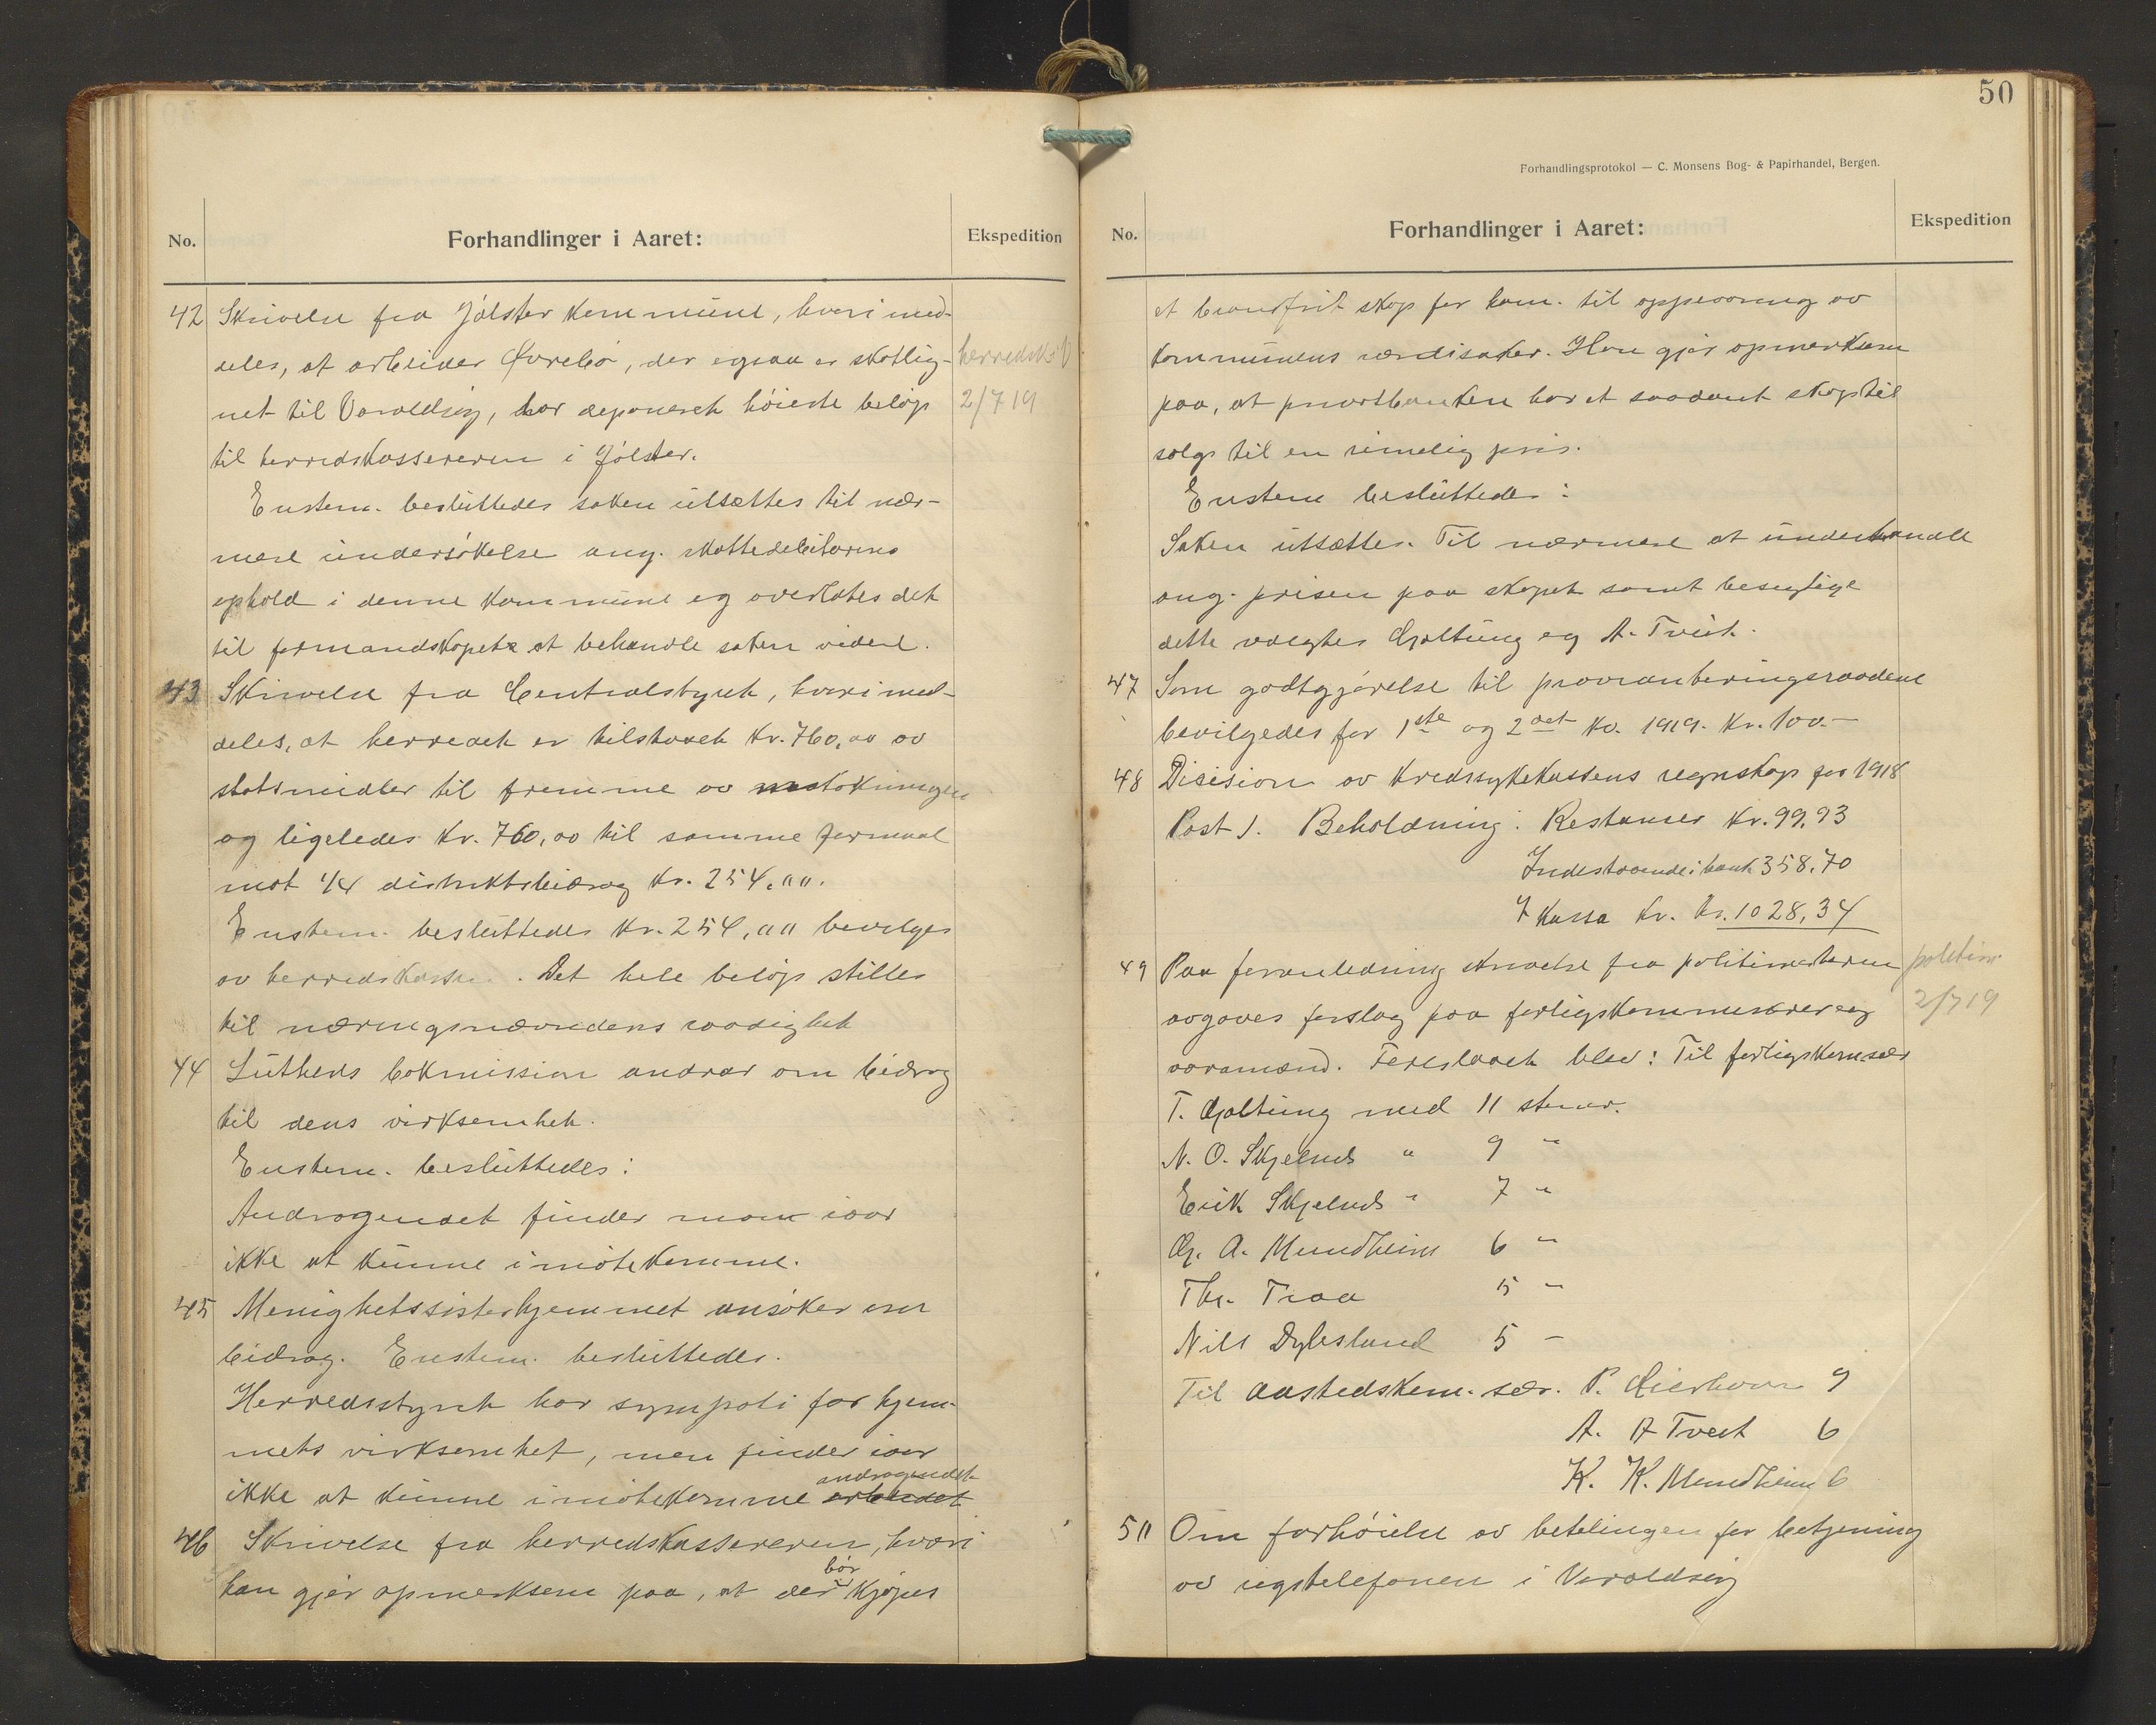 No.
Forhandlinger i Aaret:
Ekspedition
42 Skrivelse fra Jölster kommune, hvori med-
deles, at arbeider Øvrebö, der ogsaa er skatlig-
net til Varaldsöy, har deponeret höieste belöp
til herredskassereren i Jölster.
herredsk.
2/7 19
Enstem. besluttedes saken utsættes til nær-
mere undersökelse ang. skattedebitorens
ophold i denne kommune og overlates det
til formandskapet at behandle saken videre.
43 Skrivelse fra Centralstyret, hvori med-
deles, at herredet er tilstaaet kr. 760,00 av
statsmidler til fremme av matökningen
og ligeledes kr. 760,00 til samme formaal
mot 1/4 distriktsbidrag kr. 254,00.
Enstem. besluttedes kr. 254,00 bevilges
av herredskassen. Det hele belöp stilles
til næringsnævndens raadighet
44 Luthers bokmission andrar om bidrag
til dens virksemhet.
Enstem. besluttedes:
Andragendet finder man iaar
ikke at kunne imötekomme.
45 Menighetssisterhjemmet ansöker om
bidrag. Enstem. besluttedes.
Herredsstyret har sympati for hjem-
mets virksemhet, men finder iaar
ikke at kunne imötekomme arbeidet andragendet
46 Skrivelse fra herredskassereren, hvori
han gjör opmerksem paa, at der bör kjöpes
50
Forhandlingsprotokol — C. Monsens Bog- & Papirhandel, Bergen.
No.
Forhandlinger i Aaret:
Ekspedition
et brandfrit skap for kom. til oppevaring av
kommunens værdisaker. Han gjör opmerksem
paa, at privatbanken har et saadant skap til
salgs til en rimelig pris.
Enstem besluttedes:
Saken utsættes. Til nærmere at underhandle
ang. prisen paa skapet samt besigtige
dette valgtes Galtung og A. Tveit.
47 Som godtgjörelse til provianteringsraadene
bevilgedes for 1ste og 2det kv. 1919. Kr. 100.-
48 Disision av kredssykekassens regnskap for 1918
Post 1. Beholdning: Restanser kr. 99,93
Indestaaende i bank 358,70
I kassa kr. Kr. 1028,34
49 Paa foranledning skrivelse fra politimesteren
avgaves forslag paa forligskommisærer og
varamænd. Foreslaaet blev: Til forligskomsær
politim.
2/7 19
T. Galtung med 11 stemer.
N. O. Skjelnes " 9 "
Erik Skjelnes " 7 "
G. A. Mundheim 6 "
Thr. Traa 5 "
Nils Dybsland 5 -
Til aastedskom. sær. P. Gierhovn 9
A. A Tveit 6
K. K. Mundheim 6
50 Om forhöielse av betalingen for betjening
av rigstelefonen i Varaldsöy